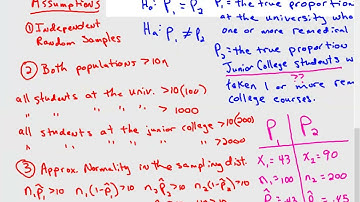 Assumptions
① Independent
Random Samples
② Both populations > 10n
all students at the univ. > 10(100)
" " " " > 1000
all students at the junior college > 10(200)
" " " " " > 2000
③ Approx. Normality in the sampling dist.
n₁p̂₁>10 n₁(1-p̂₁)>10 n₂p̂₂>10 n₂(1-p̂₂)>10
H₀: P₁ = P₂
Hₐ: P₁ ≠ P₂
P₁ = the true proportion
at the university who
one or more remedial
P₂ = the true proportion
Junior College students w
??
taken 1 or more rem
college courses.
P₁ P₂
x₁=43 x₂=90
n₁=100 n₂=200
p̂=.43 p̂=.45